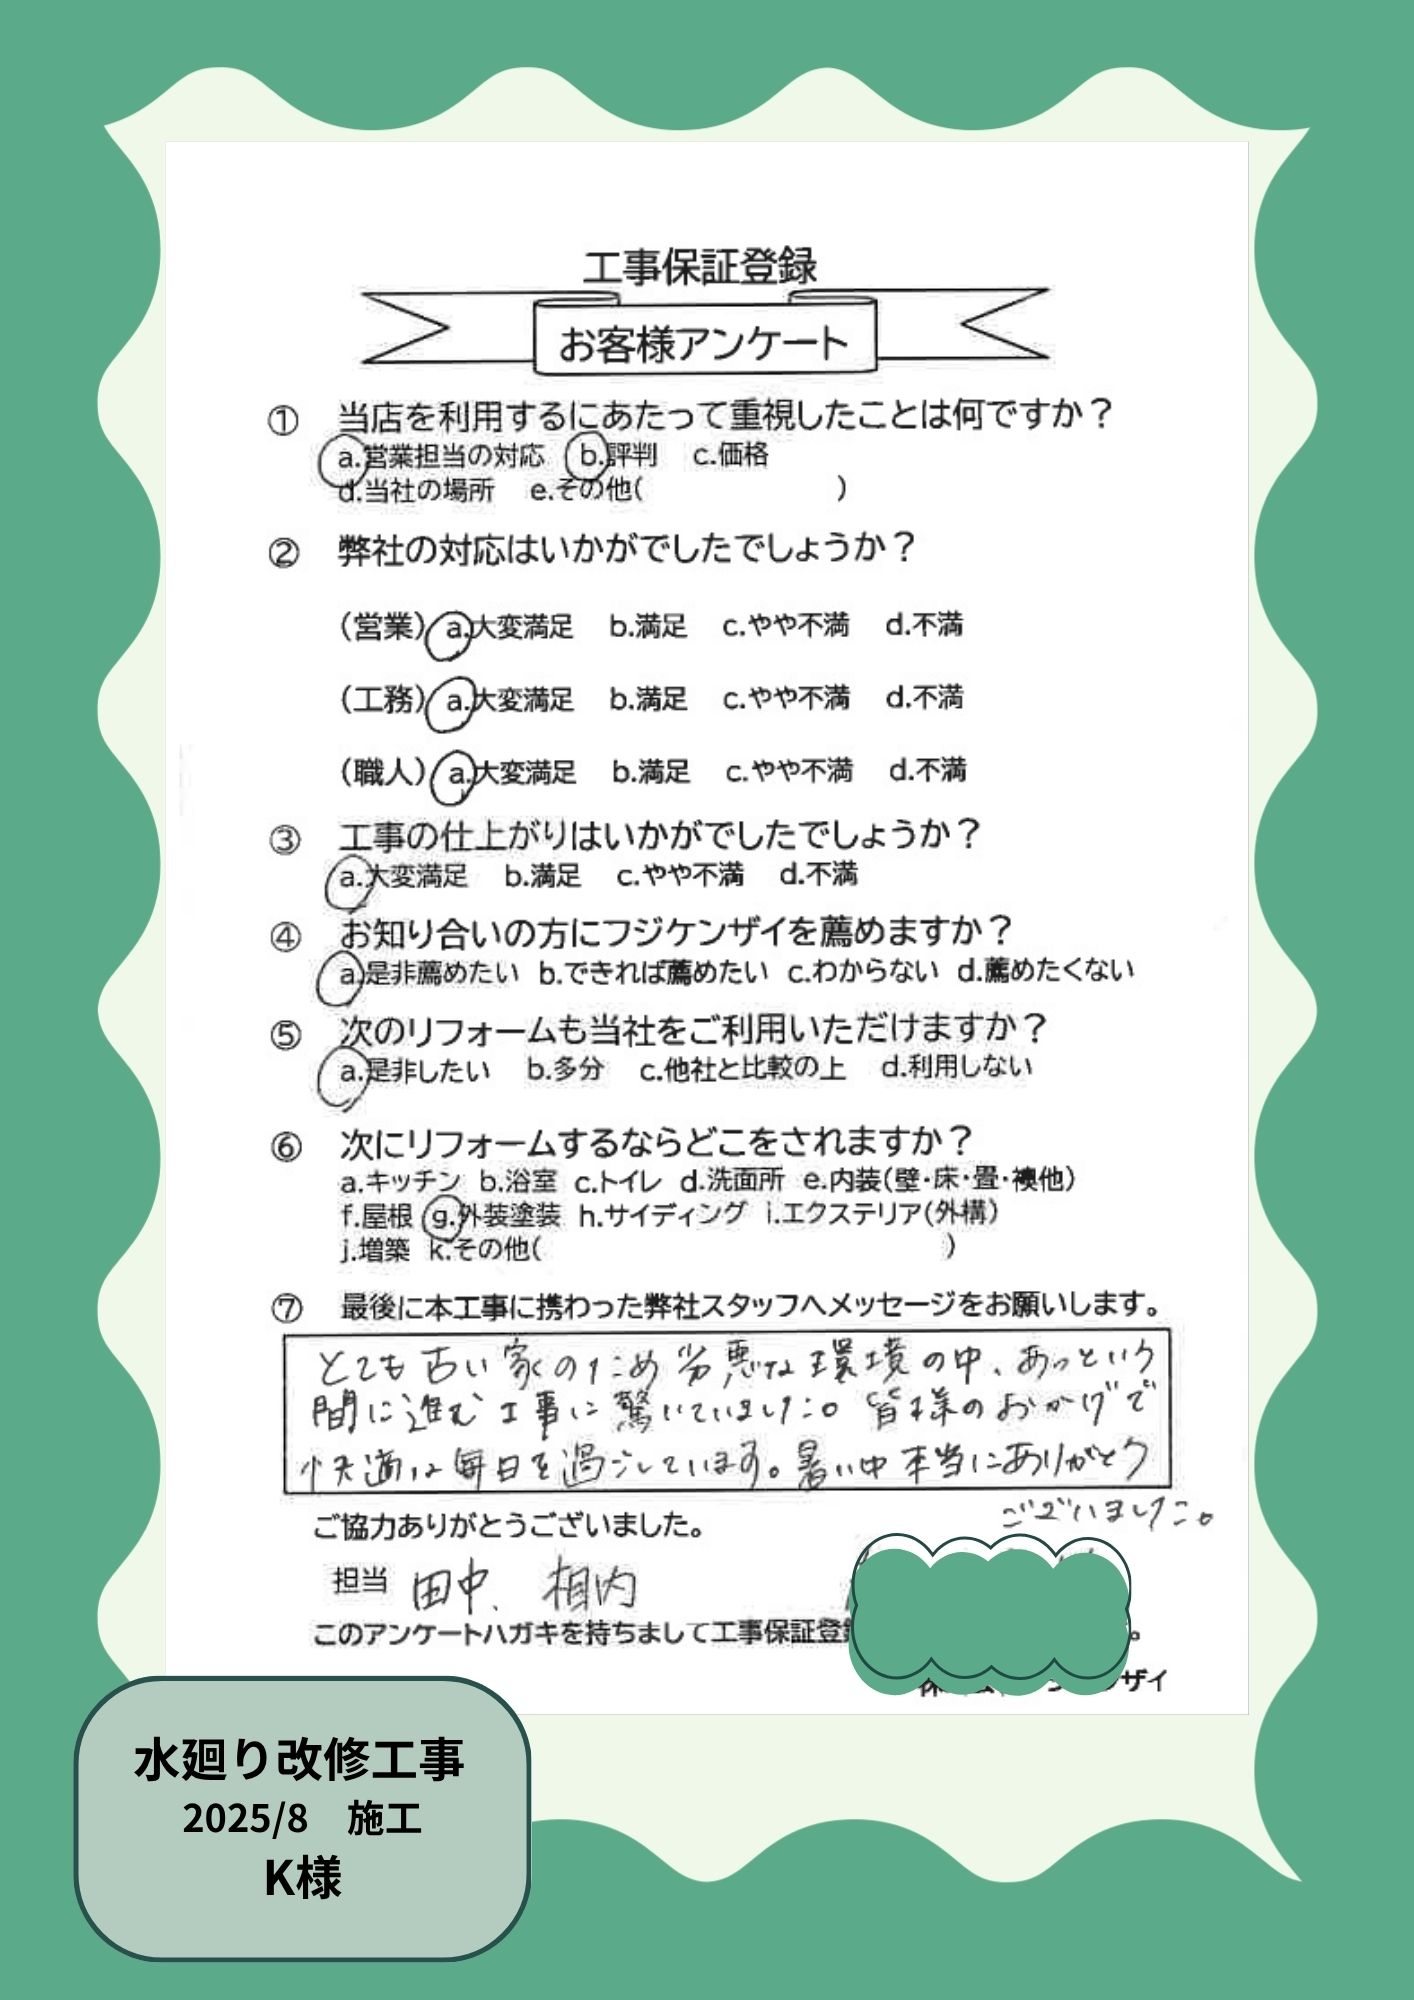 工事保証登録
お客様アンケート
① 当店を利用するにあたって重視したことは何ですか？
a.営業担当の対応 b.評判 c.価格
d.当社の場所 e.その他( )
② 弊社の対応はいかがでしたでしょうか？
(営業) a.大変満足 b.満足 c.やや不満 d.不満
(工務) a.大変満足 b.満足 c.やや不満 d.不満
(職人) a.大変満足 b.満足 c.やや不満 d.不満
③ 工事の仕上がりはいかがでしたでしょうか？
a.大変満足 b.満足 c.やや不満 d.不満
④ お知り合いの方にフジケンザイを薦めますか？
a.是非薦めたい b.できれば薦めたい c.わからない d.薦めたくない
⑤ 次のリフォームも当社をご利用いただけますか？
a.是非したい b.多分 c.他社と比較の上 d.利用しない
⑥ 次にリフォームするならどこをされますか？
a.キッチン b.浴室 c.トイレ d.洗面所 e.内装(壁・床・畳・襖他)
f.屋根 g.外装塗装 h.サイディング i.エクステリア(外構)
j.増築 k.その他( )
⑦ 最後に本工事に携わった弊社スタッフへメッセージをお願いします。
とても古い家のため劣悪な環境の中、あっという
間に進む工事に驚いていました。皆様のおかげで
快適な毎日を過ごしています。暑い中本当にありがとう
ございました。
ご協力ありがとうございました。
担当 田中、相内
このアンケートハガキを持ちまして工事保証登 。
ザイ
水廻り改修工事
2025/8 施工
K様